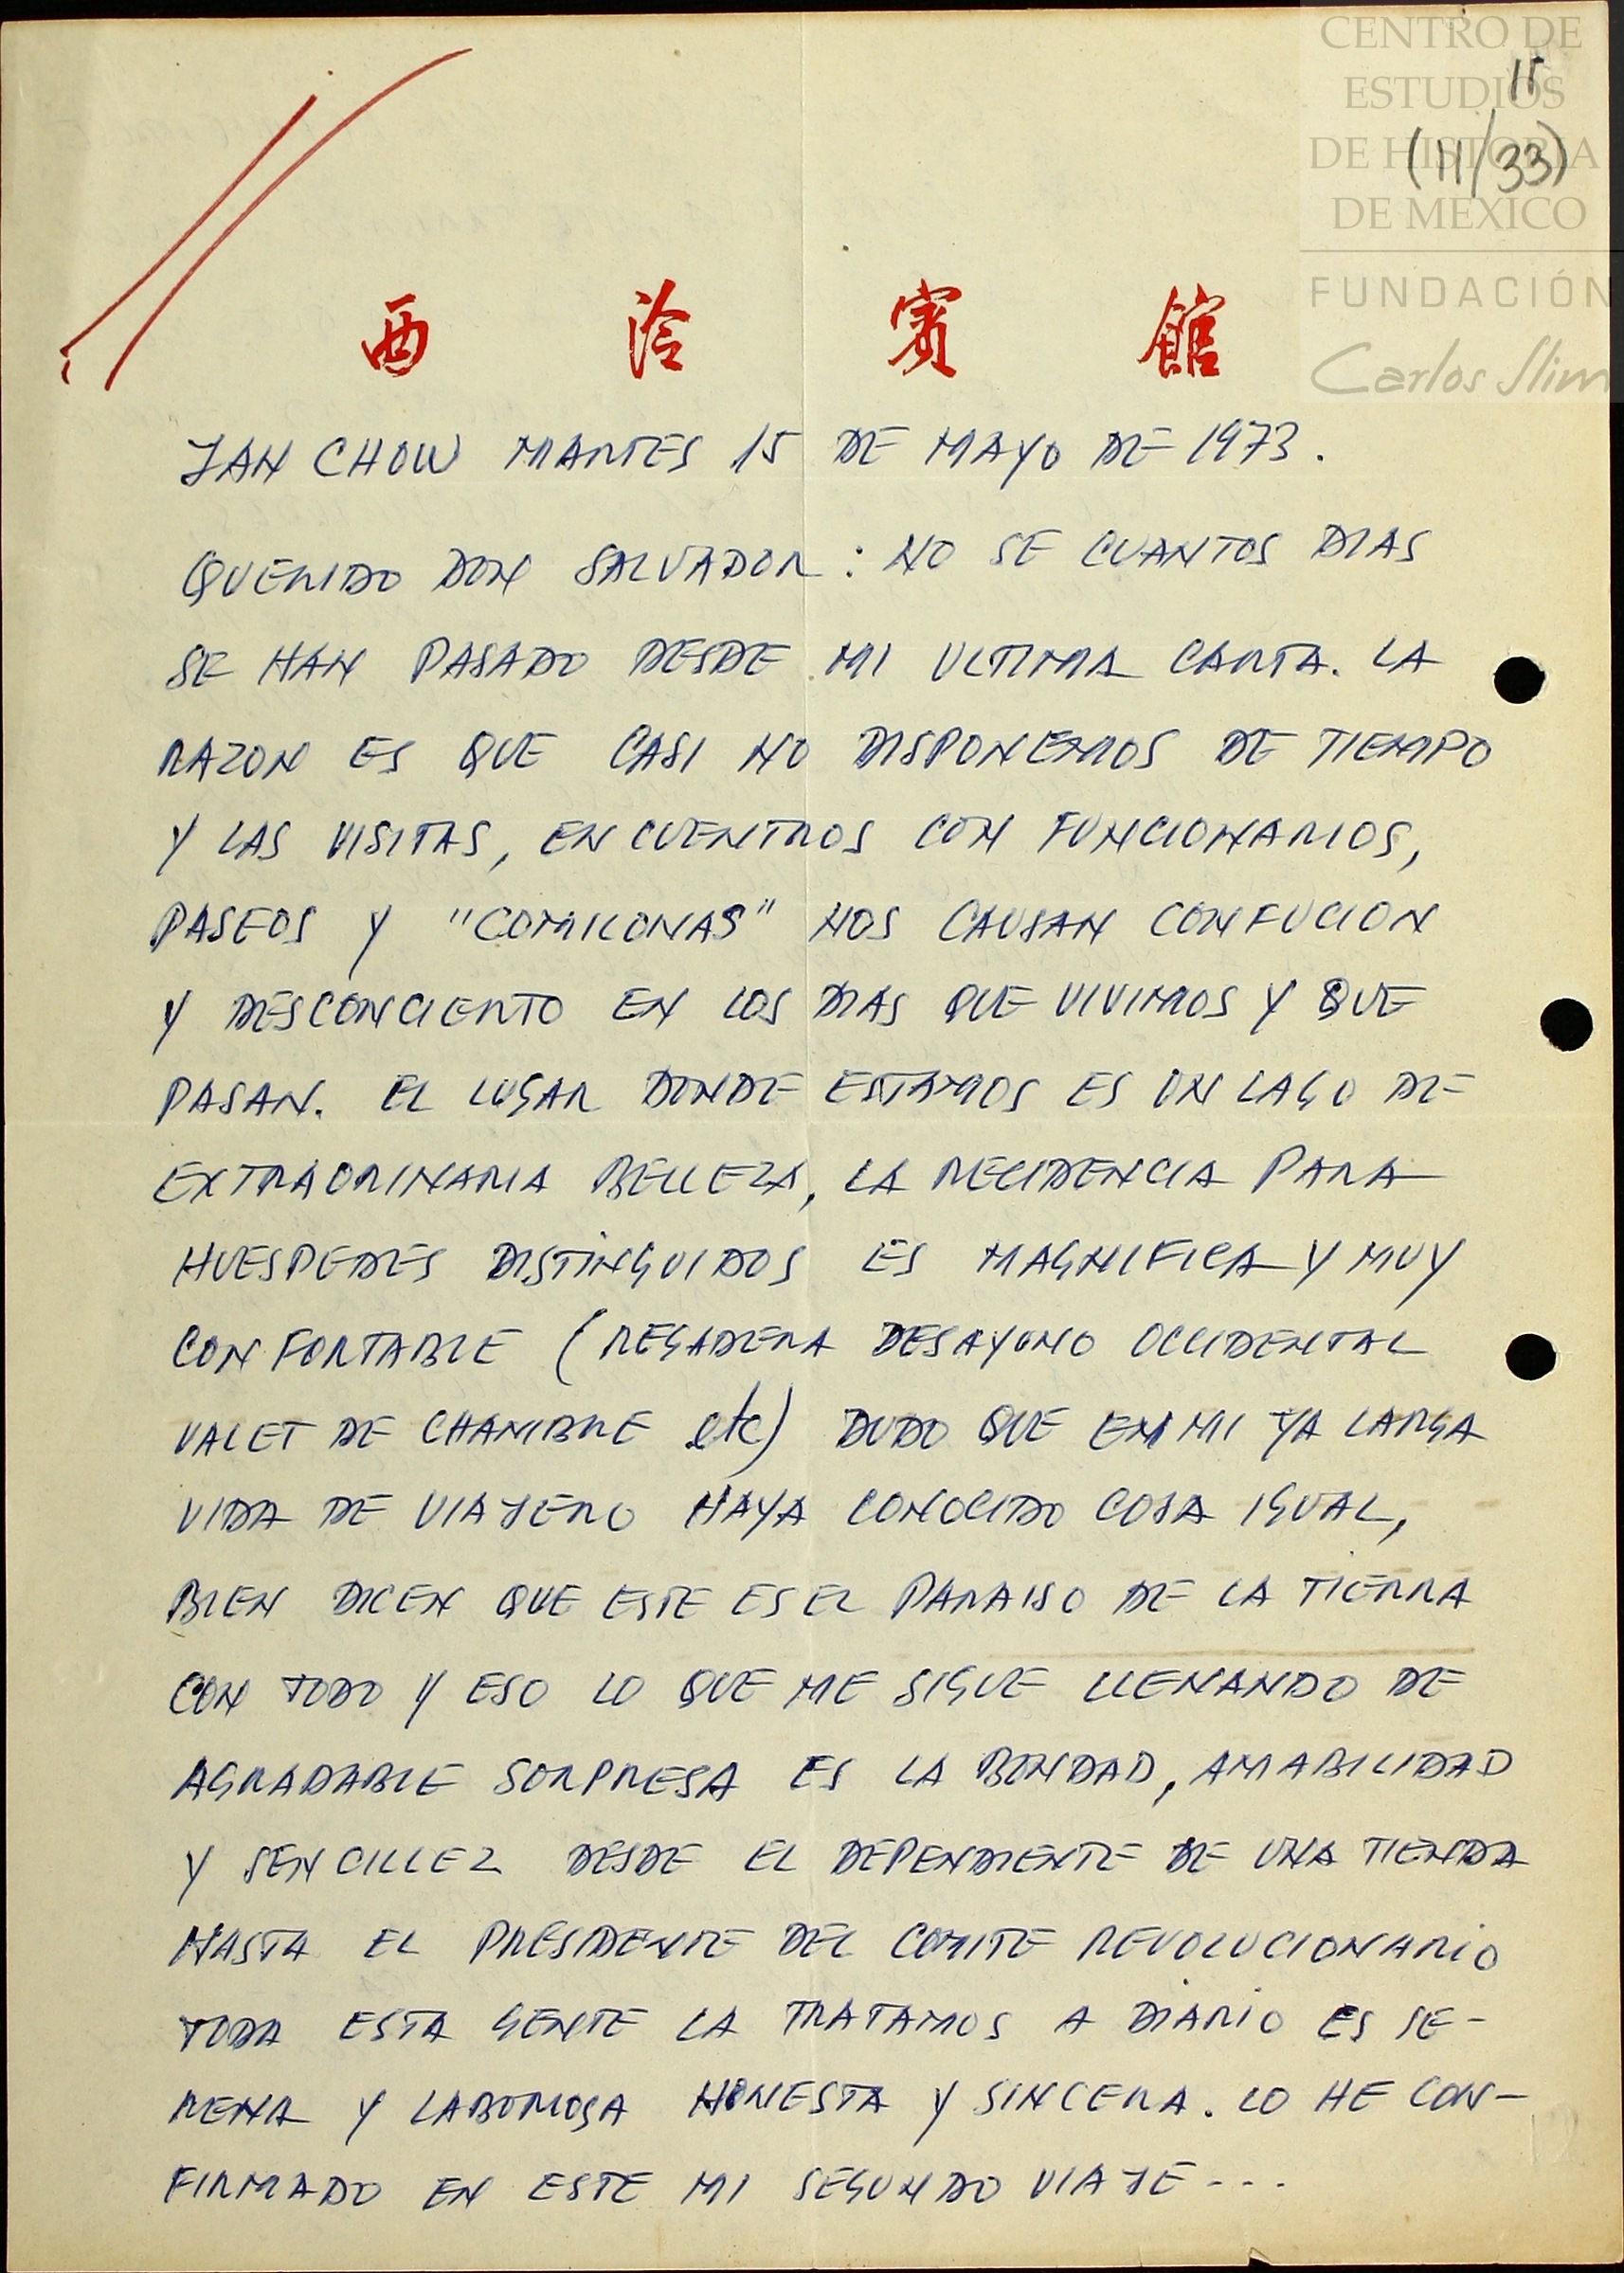 CENTRO DE
ESTUDIOS
DE HISTORIA
DE MEXICO
FUNDACIÓN
Carlos Slim
15
(11/33)
西泠賓館
JAN CHOW MARTES 15 DE MAYO DE 1973.
QUERIDO DON SALVADOR: NO SE CUANTOS DIAS
SE HAN PASADO DESDE MI ULTIMA CARTA. LA
RAZON ES QUE CASI NO DISPONEMOS DE TIEMPO
Y LAS VISITAS, ENCUENTROS CON FUNCIONARIOS,
PASEOS Y "COMILONAS" NOS CAUSAN CONFUCION
Y DESCONCIERTO EN LOS DIAS QUE VIVIMOS Y QUE
PASAN. EL LUGAR DONDE ESTAMOS ES UN LAGO DE
EXTRAORINARIA BELLEZA, LA RECIDENCIA PARA
HUESPEDES DISTINGUIDOS ES MAGNIFICA Y MUY
CONFORTABLE (REGADERA DESAYUNO OCCIDENTAL
VALET DE CHAMBRE etc) DUDO QUE EN MI YA LARGA
VIDA DE VIAJERO HAYA CONOCIDO COSA IGUAL,
BIEN DICEN QUE ESTE ES EL PARAISO DE LA TIERRA
CON TODO Y ESO LO QUE ME SIGUE LLENANDO DE
AGRADABLE SORPRESA ES LA BONDAD, AMABILIDAD
Y SENCILLEZ DESDE EL DEPENDIENTE DE UNA TIENDA
HASTA EL PRESIDENTE DEL COMITE REVOLUCIONARIO
TODA ESTA GENTE LA TRATAMOS A DIARIO ES SE-
RENA Y LABORIOSA HONESTA Y SINCERA. LO HE CON-
FIRMADO EN ESTE MI SEGUNDO VIAJE---